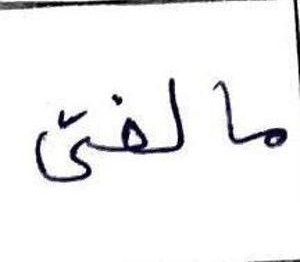 ما لفتى